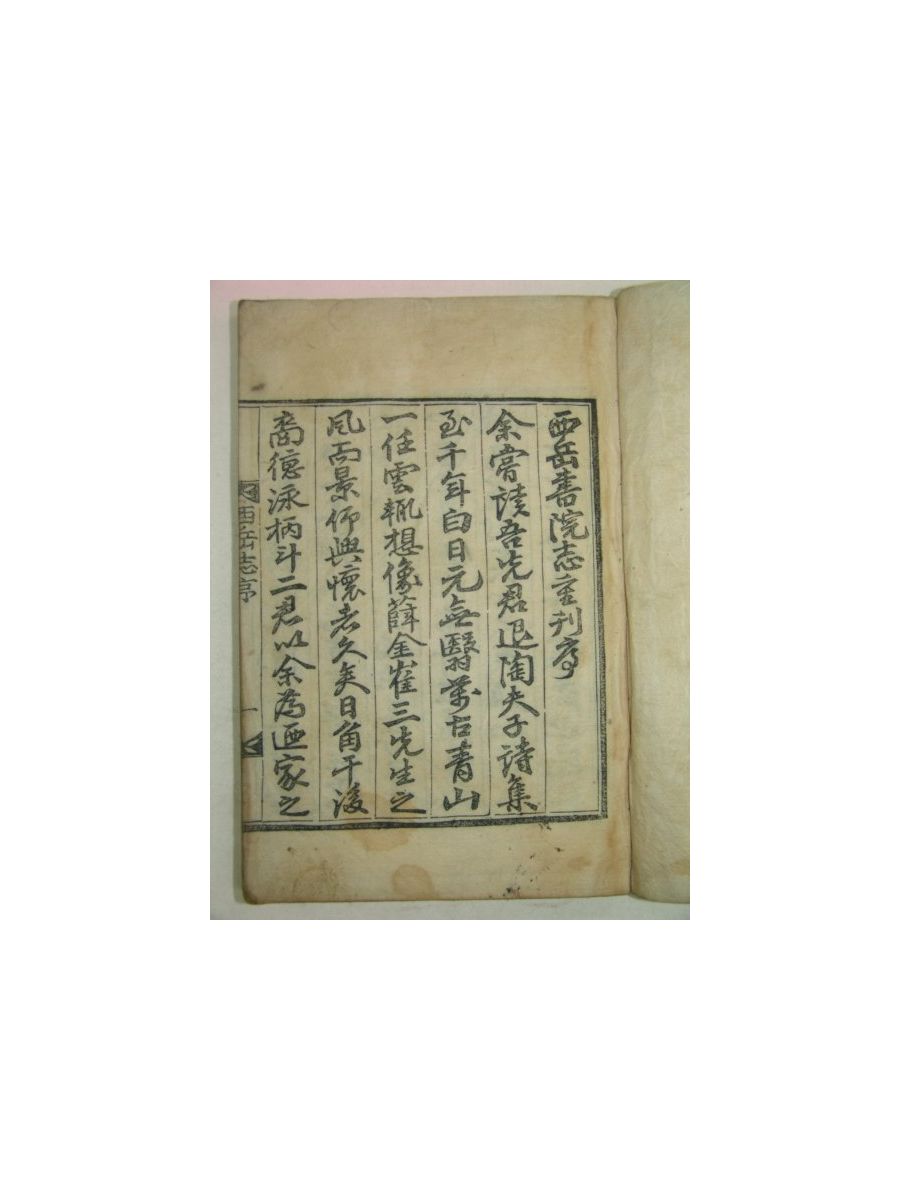 西岳書院志重刊序
余嘗讀吾先君退陶夫子詩集
至千年白日元無翳萬古青山
一任雲輒想像薛金崔三先生之
風而景仰興懷者久矣日角干後
裔德泳柄斗二君以余爲通家之
西岳志序 一